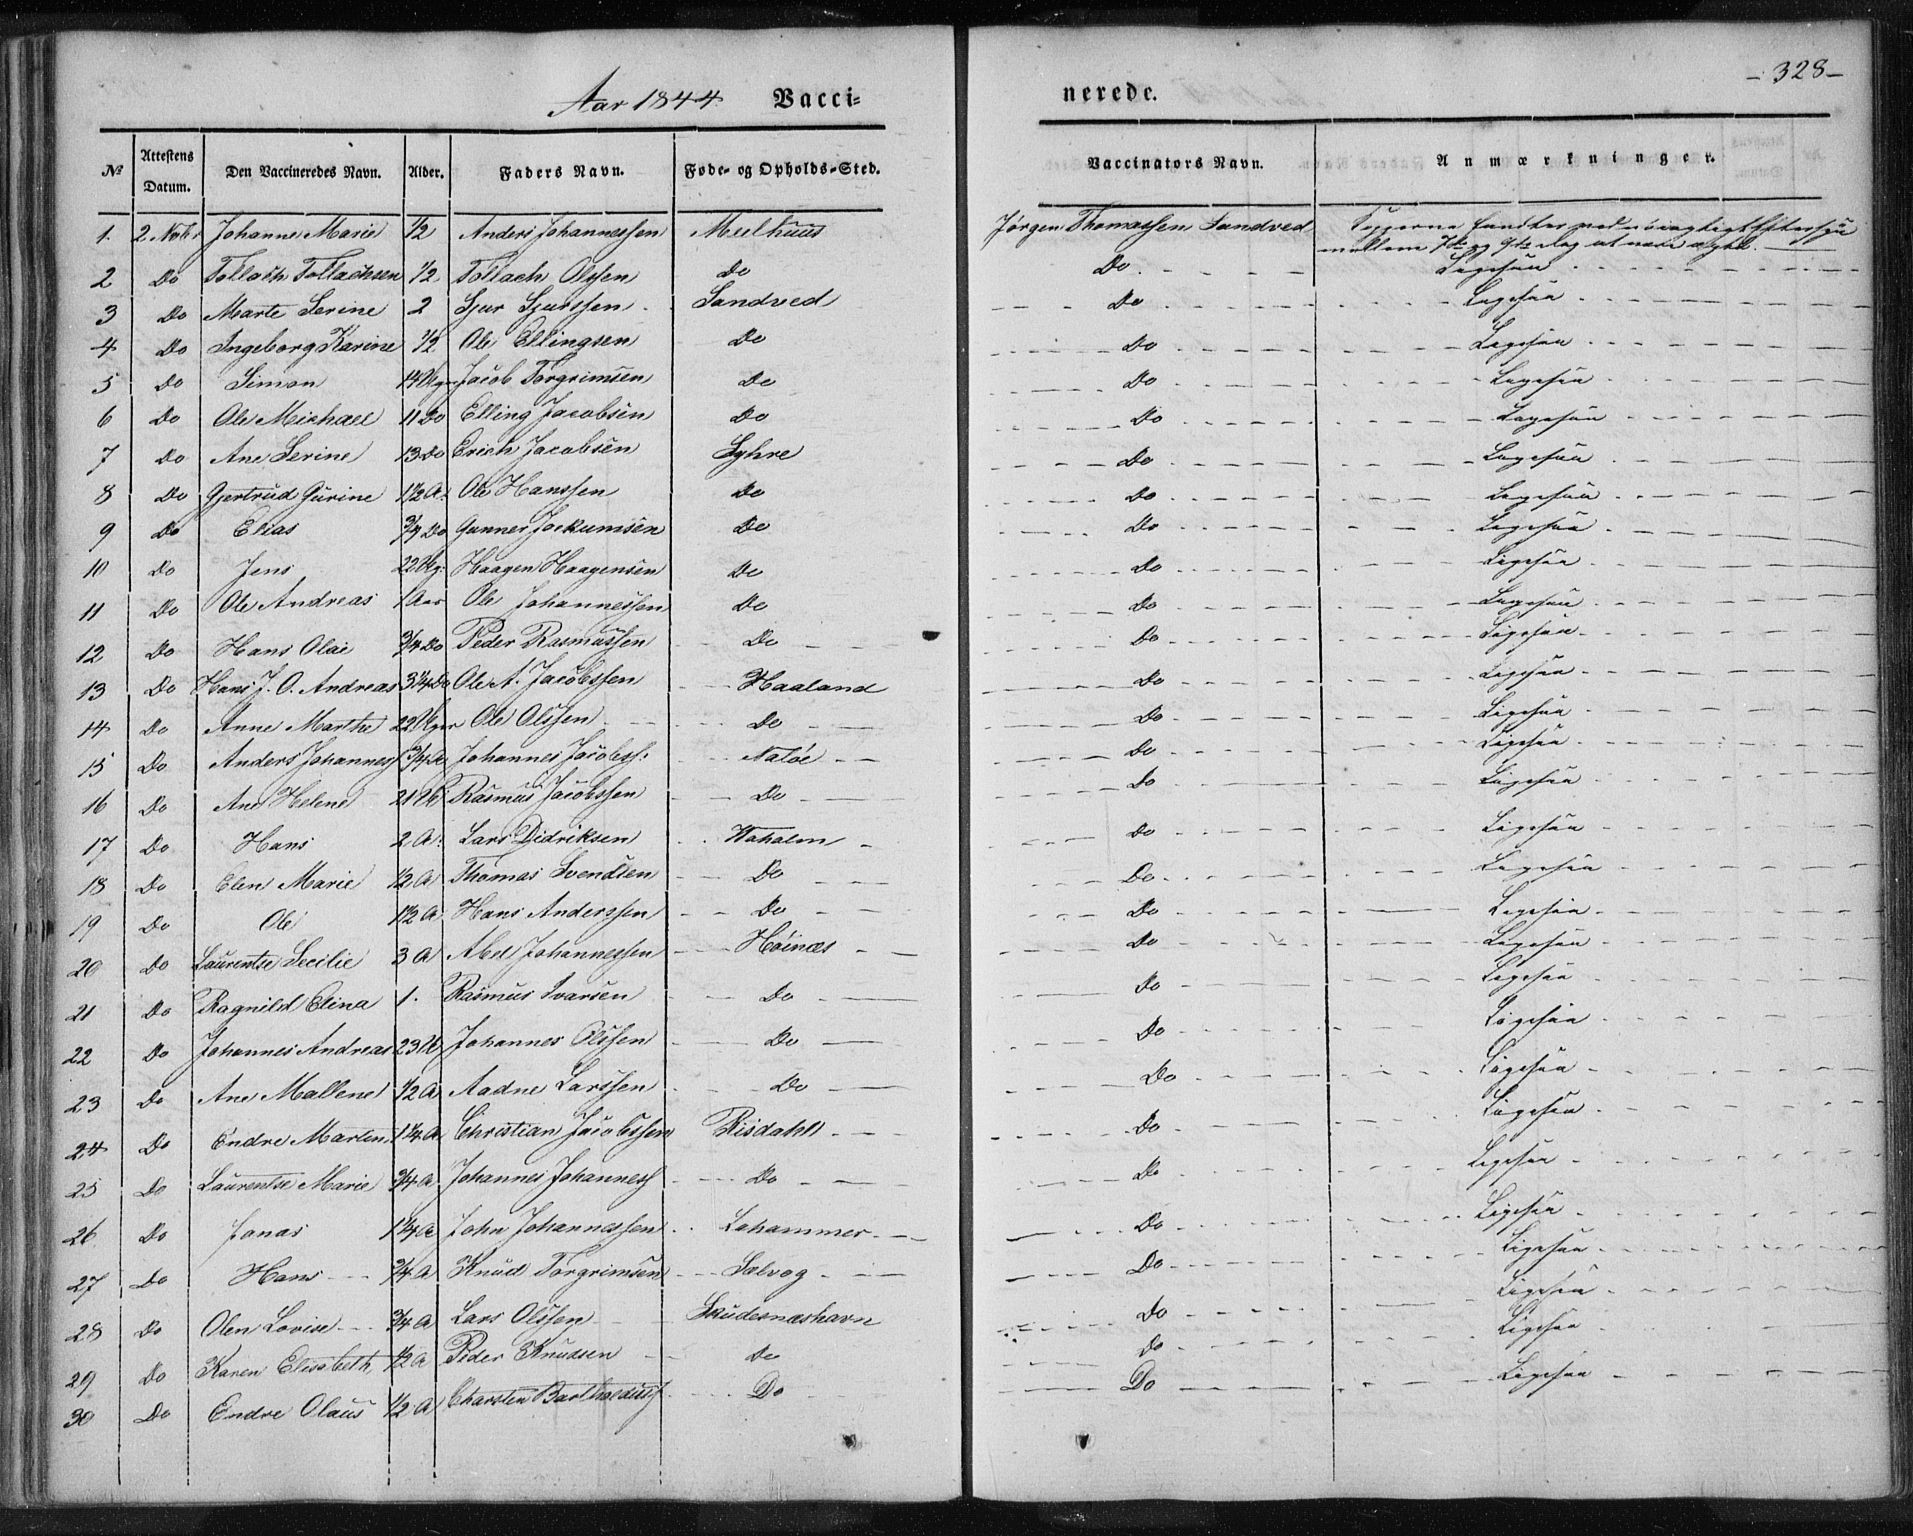 Aar 1844 Vacci=
nerede.
- 328 -
№ Attestens Datum. Den Vaccineredes Navn. Alder. Faders Navn. Føde- og Opholds-Sted. Vaccinators Navn. Anmærkninger.
1. 2 Novbr Johanne Marie 1/2 Anders Johannessen Meelhuus Jørgen Thomassen Sandved Kopperne fandtes ved nøiagtigt Eftersyn
mellem 7de og 9de dag at være ægte.
2 Do Tollach Tollachsen 1/2 Tollach Olssen Do Do Ligesaa
3 Do Marte Serine 2 Sjur Sjurssen Sandved Do Ligesaa
4 Do Ingeborg Karine 1/2 Ole Ellingsen Do Do Ligesaa
5 Do Simon 14 Uger Jacob Torgrimsen Do Do Ligesaa
6 Do Ole Michael 11 Do Elling Jacobsen Do Do Ligesaa
7 Do Ane Serine 13 Do Erich Jacobsen Syhre Do Ligesaa
8 Do Gjertrud Gurine 1 1/2 A: Ole Hanssen Do Do Ligesaa
9 Do Elias 3/4 Do Gunner Jockumsen Do Do Ligesaa
10 Do Jens 22 Ug: Haagen Haagensen Do Do Ligesaa
11 Do Ole Andreas 1 Aar Ole Johannessen Do Do Ligesaa
12 Do Hans Olai 3/4 Do Peder Rasmussen Do Do Ligesaa
13 Do Hans J. O. Andreas 3 1/4 Do Ole A. Jacobssen Haaland Do Ligesaa
14 Do Anne Marthe 22 Uger Ole Olssen Do Do Ligesaa
15 Do Anders Johannes 3/4 A Johannes Jacobss: Natøe Do Ligesaa
16 Do Ane Helene 21 U Rasmus Jacobssen Do Do Ligesaa
17 Do Hans 2 A: Lars Didriksen Wahalen Do Ligesaa
18 Do Elen Marie 1/2 A Thomas Svendsen Do Do Ligesaa
19 Do Ole 1 1/2 A Hans Anderssen Do Do Ligesaa
20 Do Laurentse Secilie 3 A Abel Johannessen Høinæs Do Ligesaa
21 Do Ragnild Elina 1. Rasmus Ivarsen Do Do Ligesaa
22 Do Johannes Andreas 23 U Johannes Olssen Do Do Ligesaa
23 Do Ane Mallene 1/2 A Aadne Larssen Do Do Ligesaa
24 Do Endre Marten 1 1/4 A Christian Jacobssen Risdahl Do Ligesaa
25 Do Laurentse Marie 3/4 A Johannes Johanness Do Do Ligesaa
26 Do Jonas 1 1/4 A John Johannessen Lahammer Do Ligesaa
27 Do Hans 3/4 A Knud Torgrimsen Salvog Do Ligesaa
28 Do Olen Lovise 3/4 A Lars Olssen Skudesnæshavn Do Ligesaa
29 Do Karen Elisabeth 1/2 A Peder Knudsen Do Do Ligesaa
30 Do Endre Olaus 1/2 A Charsten Do Do Ligesaa